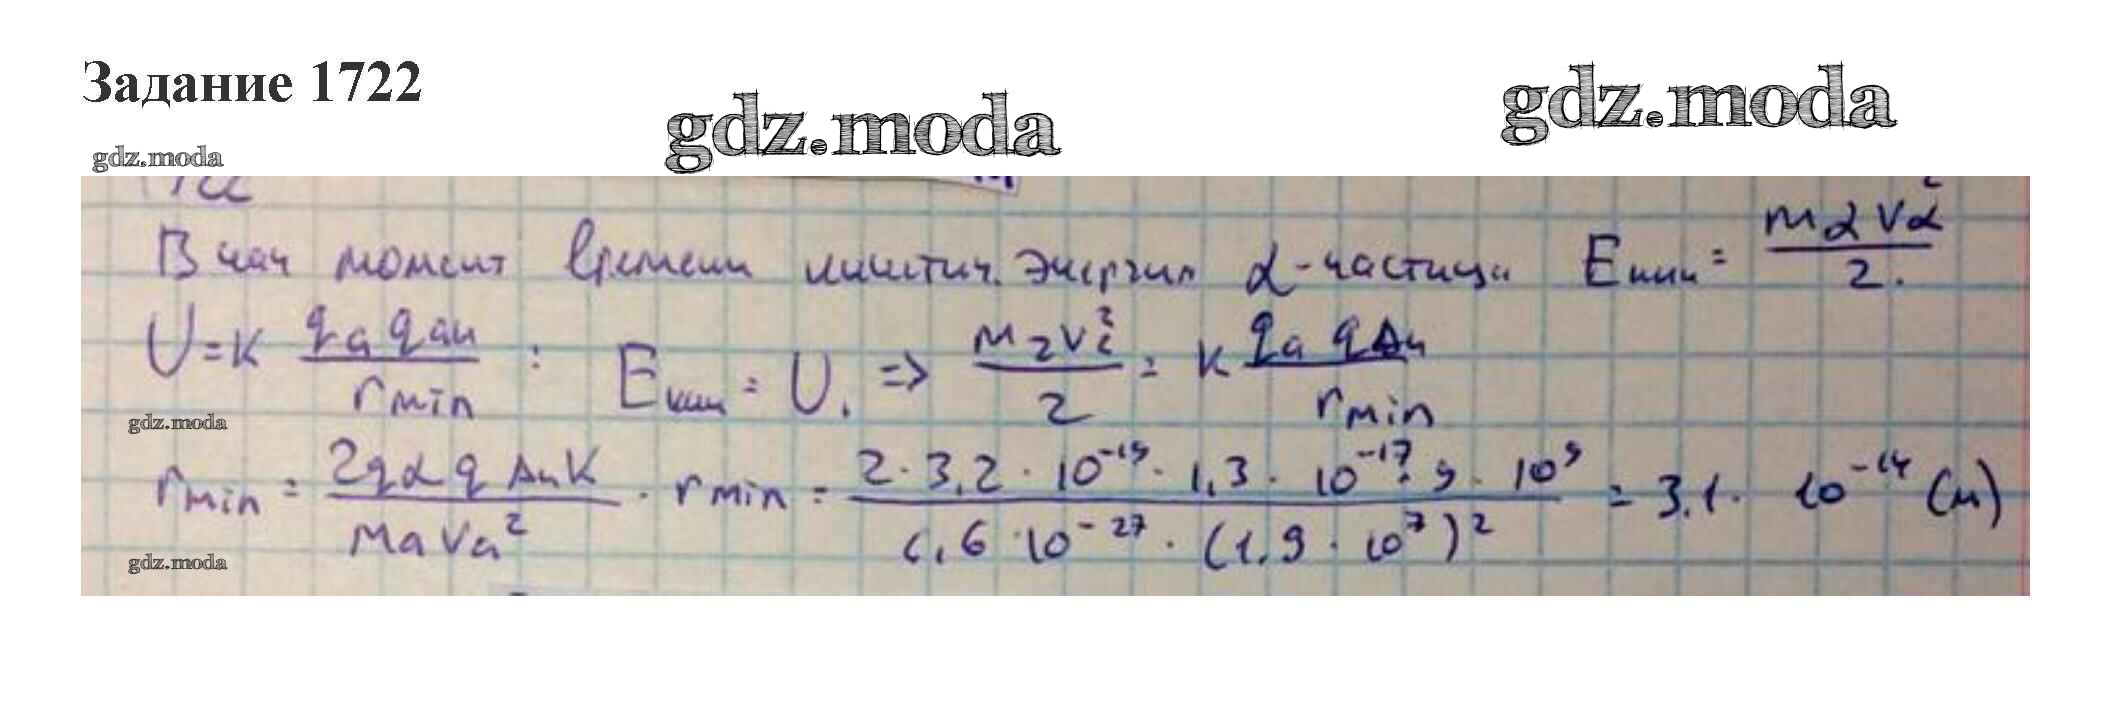 Задание 1722
gdz.moda
gdz.moda
gdz.moda
1722
В нач момент времени кинетич. энергия α-частицы Eкин = mαvα²/2.
U = k qα qAu / rmin ; Eкин = U. => mαvα²/2 = k qα qAu / rmin
gdz.moda
rmin = 2qα qAu k / mαvα² . rmin = 2·3,2·10⁻¹⁹·1,3·10⁻¹⁷·9·10⁹ / 6,6·10⁻²⁷·(1,9·10⁷)² = 3,1·10⁻¹⁴ (м)
gdz.moda